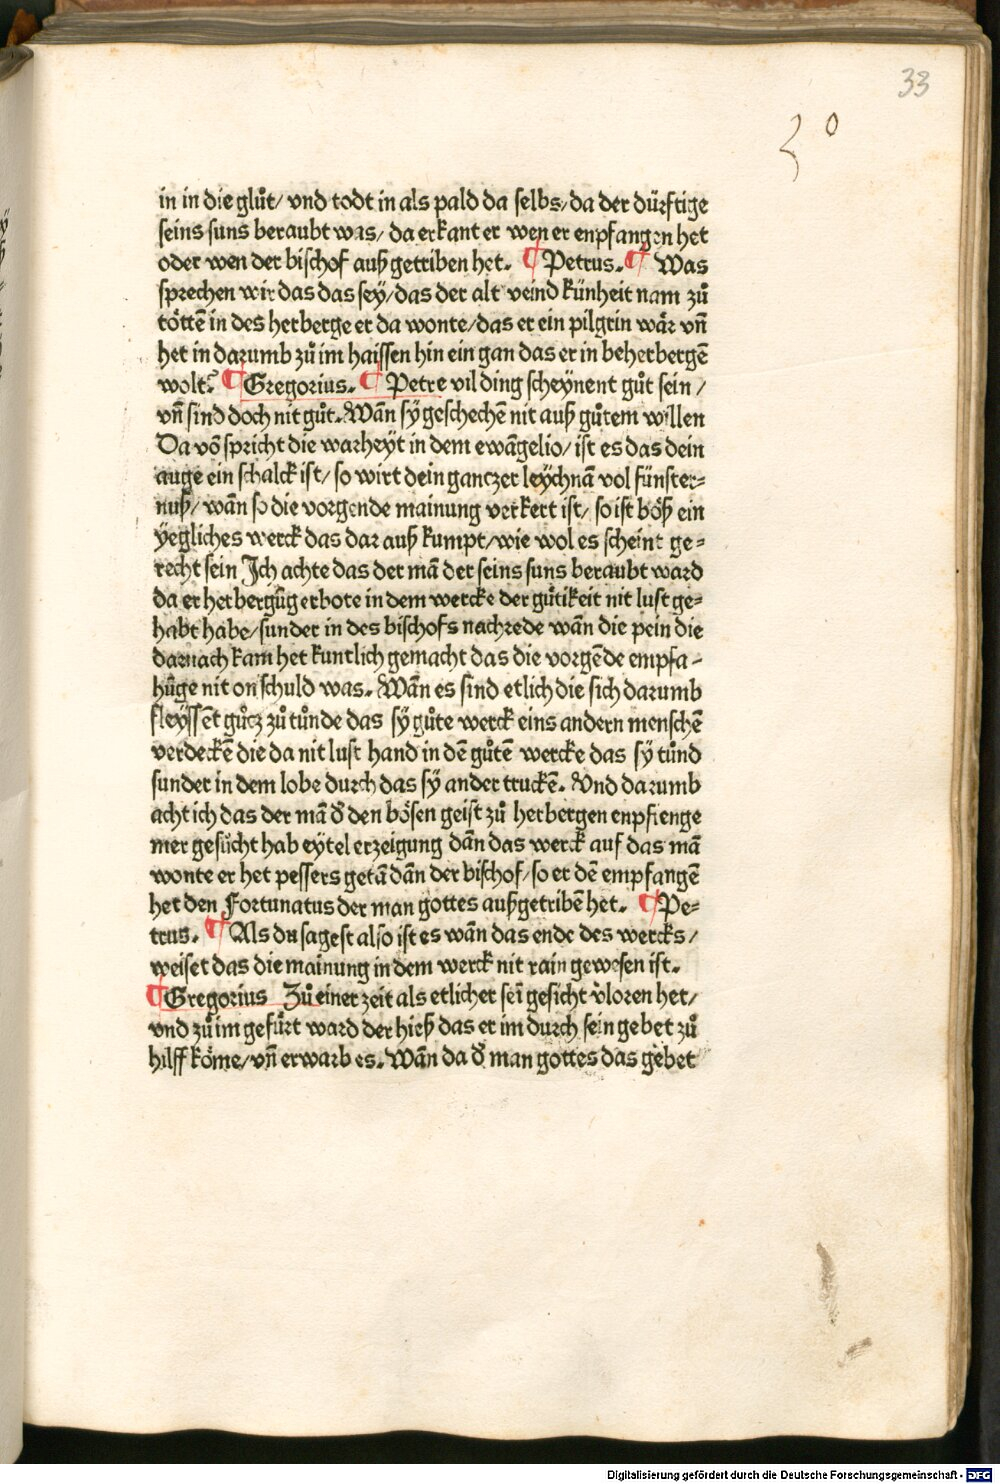 33
30
in in die glůt/ vnd todt in als pald da selbs/ da der dürftige
seins suns beraubt was/ da erkant er wen er enpfangen het
oder wen der bischof auß getriben het. ¶ Petrus. ¶ Was
sprechen wir das das sey/ das der alt veind künheit nam zů
töttē in des herberge er da wonte/ das er ein pilgrin wår vn̄
het in darumb zů im haissen hin ein gan das er in beherbergē
wolt? ¶ Gregorius. ¶ Petre vil ding scheynent gůt sein /
vn̄ sind doch nit gůt. Wān sy geschechē nit auß gůtem willen
Da vō spricht die warheyt in dem ewāgelio/ ist es das dein
auge ein schalck ist/ so wirt dein ganczer leychnā vol fünster=
nuß/ wān so die vorgende mainung verkert ist/ so ist böß ein
yegliches werck das dar auß kumpt/ wie wol es scheint ge=
recht sein Ich achte das der mā der seins suns beraubt ward
da er herbergūg erbote in dem wercke der gůtikeit nit lust ge=
habt habe/ sunder in des bischofs nachrede wān die pein die
darnach kam het kuntlich gemacht das die vorgēde empfa=
hūge nit on schuld was. Wān es sind etlich die sich darumb
fleyssēt gůcz zů tůnde das sy gůte werck eins andern menschē
verdeckē die da nit lust hand in dē gůtē wercke das sy tůnd
sunder in dem lobe durch das sy ander truckē. Vnd darumb
acht ich das der mā d̕ den bösen geist zů herbergen enpfienge
mer gesůcht hab eytel erzeigung dān das werck auf das mā
wonte er het pessers getā dān der bischof/ so er dē empfangē
het den Fortunatus der man gottes außgetribē het. ¶ Pe=
trus. ¶ Als du sagest also ist es wān das ende des wercks/
weiset das die mainung in dem werck nit rain gewesen ist.
¶ Gregorius Zů einer zeit als etlicher sei̅ gesicht v̕loren het/
vnd zů im gefůrt ward der hieß das er im durch sein gebet zů
hilff köme/ vn̄ erwarb es. Wān da d̕ man gottes das gebet
Digitalisierung gefördert durch die Deutsche Forschungsgemeinschaft - DFG